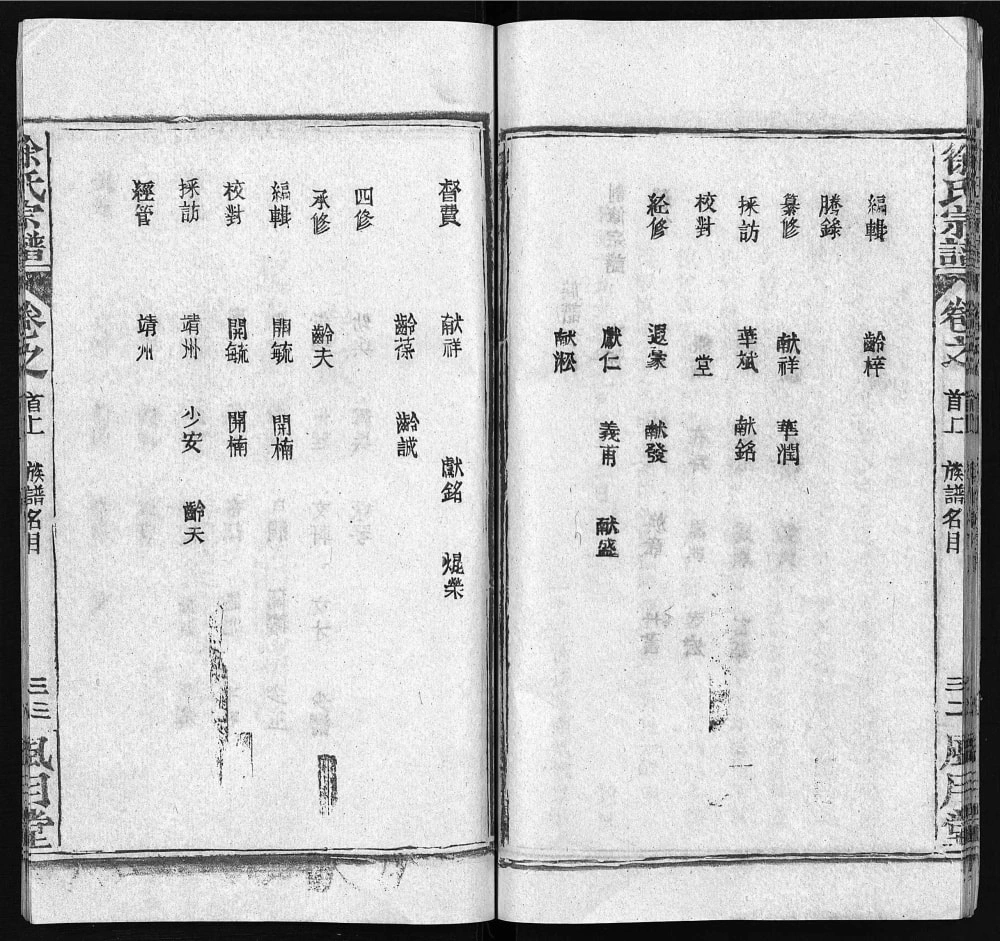 徐氏宗譜 卷之 首上 族譜名目 三二 風月堂
編輯 齡梓
謄錄
纂修 献祥 華潤
採訪 華斌 献銘
校對 堂
経修 退篆 献發
獻仁 義甫 献盛
献淞
督費 献祥 獻銘 焜榮
齡葆 齡誠
四修
承修 齡夫
編輯 開毓 開楠
校對 開毓 開楠
採訪 靖州 少安 齡天
經管 靖州
徐氏宗譜 卷之 首上 族譜名目 三三 風月堂